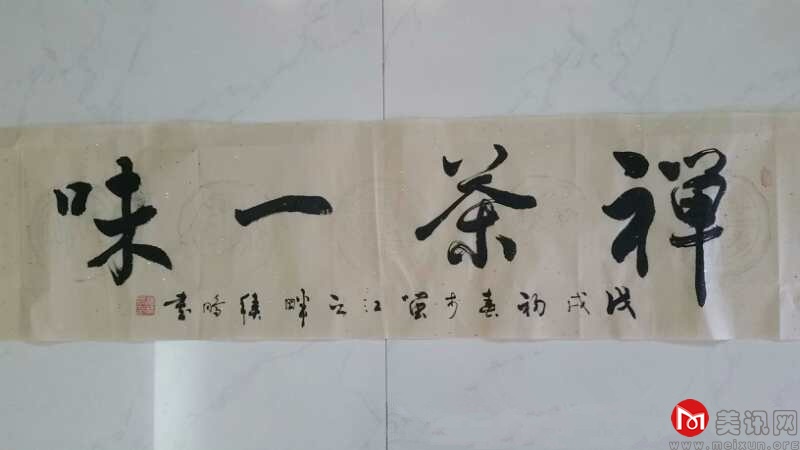 禅茶一味
戊戌初春于蛍江之畔侯鸣书
美讯网
www.meixun.org